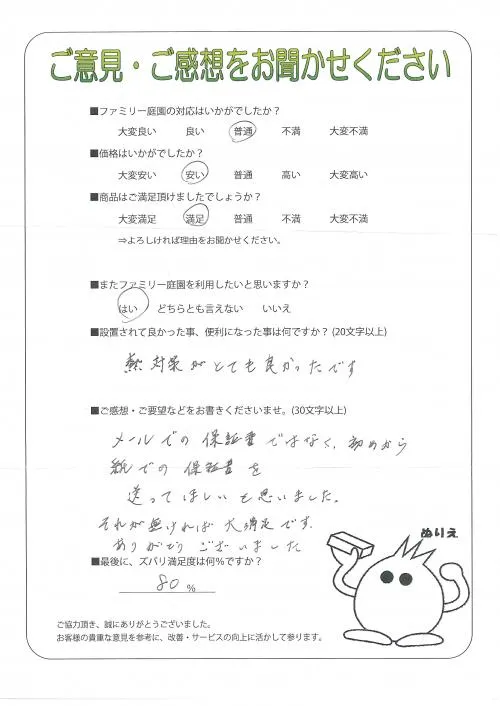 ご意見・ご感想をお聞かせください
■ファミリー庭園の対応はいかがでしたか？
大変良い 良い 普通 不満 大変不満
■価格はいかがでしたか？
大変安い 安い 普通 高い 大変高い
■商品はご満足頂けましたでしょうか？
大変満足 満足 普通 不満 大変不満
⇒よろしければ理由をお聞かせください。
■またファミリー庭園を利用したいと思いますか？
はい どちらとも言えない いいえ
■設置されて良かった事、便利になった事は何ですか？(20文字以上)
熱対策がとても良かったです
■ご感想・ご要望などをお書きくださいませ。(30文字以上)
メールでの保証書ではなく、初めから
紙での保証書を
送ってほしいと思いました。
それが無ければ大満足です.
ありがとうございました
■最後に、ズバリ満足度は何％ですか？
80 ％
ぬりえ
ご協力頂き、誠にありがとうございました。
お客様の貴重な意見を参考に、改善・サービスの向上に活かして参ります。